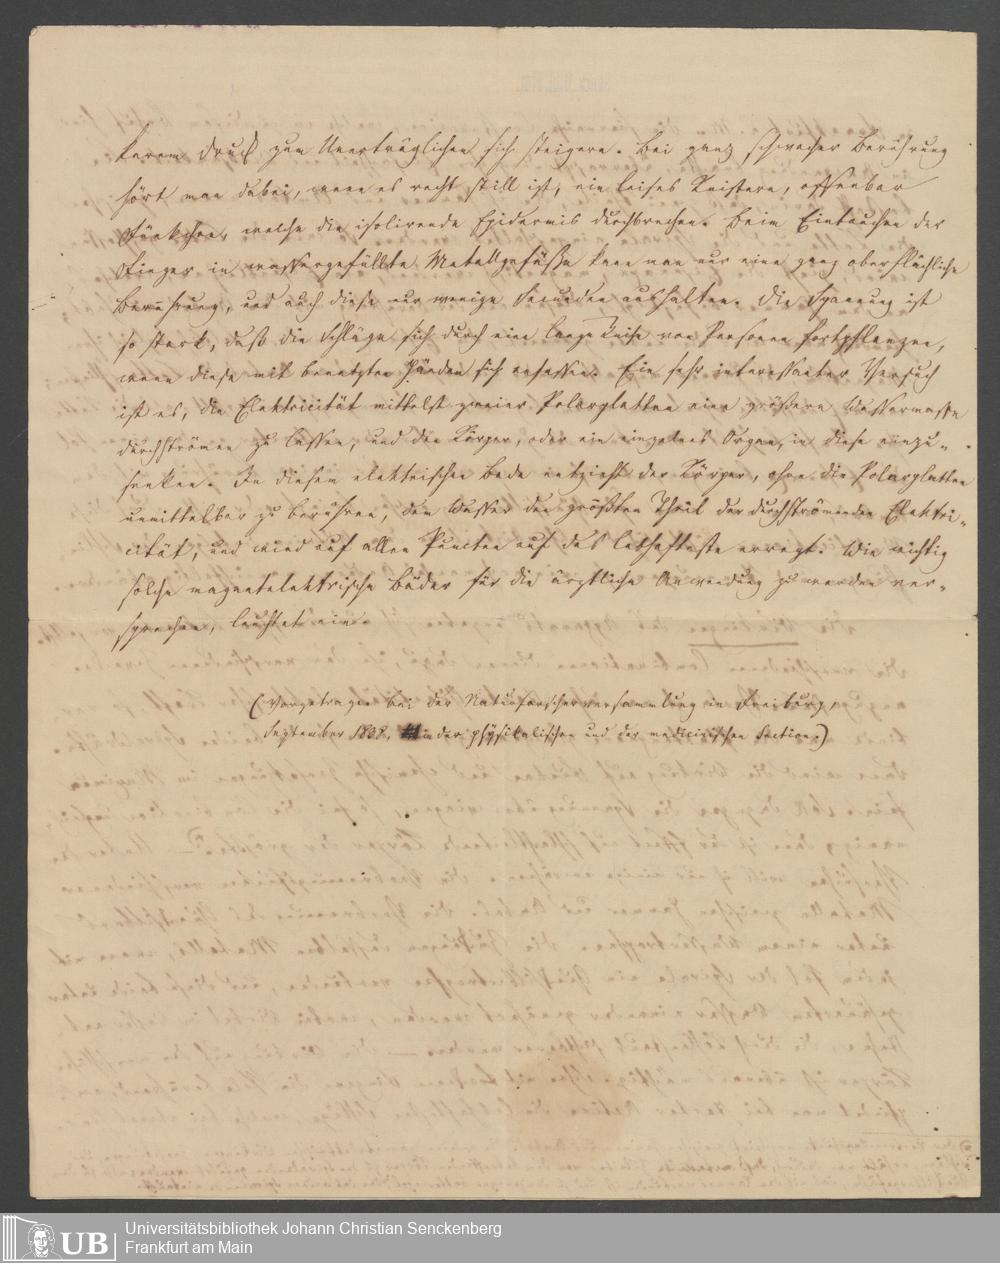 kerem Druck zum Unerträglichen sich steigern. Bei ganz schwacher Berührung
hört man dabei, wenn es recht still ist, ein leises Knistern, offenbar
Fünkchen, welche die isolirende Epidermis durchbrechen. Beim Eintauchen der
Finger in wassergefüllte Metallgefäße kann man nur eine ganz oberflächliche
Berührung, und auch diese nur wenige Secunden aushalten. Die Spannung ist
so stark, daß die Schläge sich durch eine lange Reihe von Personen fortpflanzen,
wenn diese mit benetzten Händen sich anfassen. Ein sehr interessanter Versuch
ist es, die Elektricität mittelst zweier Polarplatten eine größere Wassermasse
durchströmen zu lassen, und den Körper, oder ein einzelnes Organ, in diese einzu-
senken. In diesem elektrischen Bade entzieht der Körper, ohne die Polarplatten
unmittelbar zu berühren, dem Wasser den größten Theil der durchströmenden Elektri-
cität, und wird auf allen Puncten auf das lebhafteste erregt. Wie wichtig
solche magnetelektrische Bäder für die ärztliche Anwendung zu werden ver-
sprechen, leuchtet ein.
(Vorgetragen bei der Naturforscherversammlung in Freiburg,
September 1838, in der physikalischen und der medicinischen Section.)
UB
Universitätsbibliothek Johann Christian Senckenberg
Frankfurt am Main